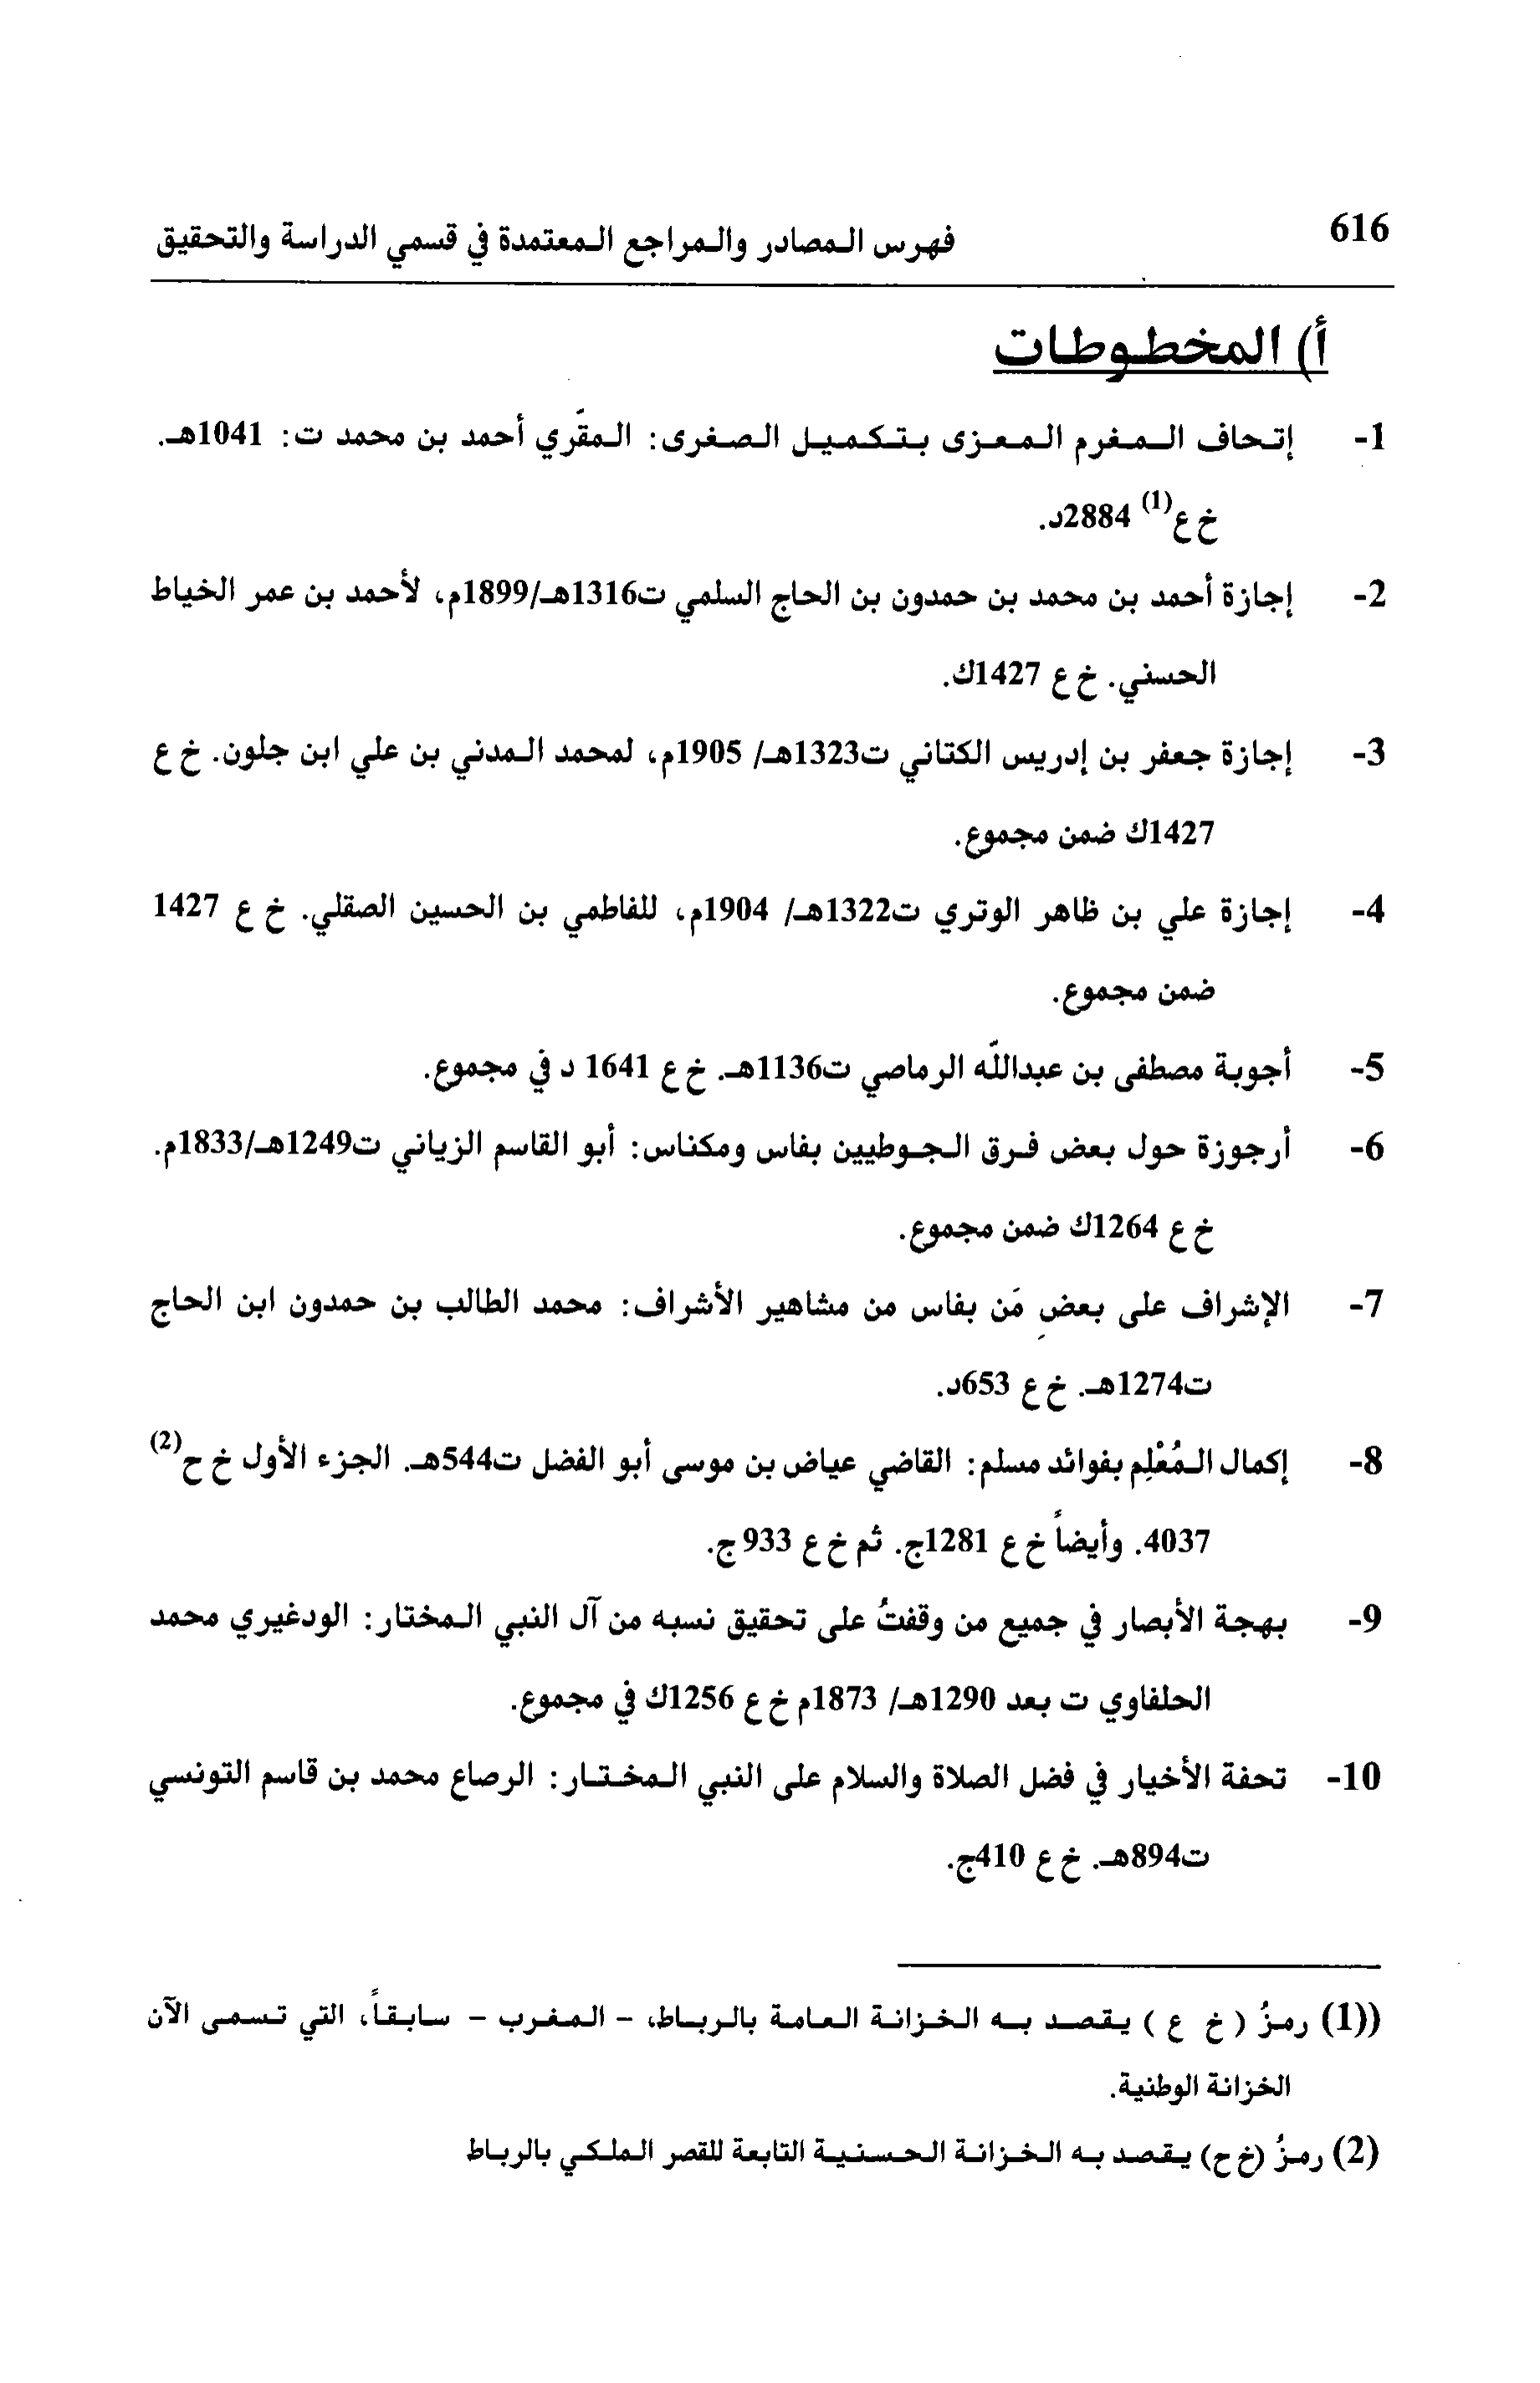 616
فهرس المصادر والمراجع المعتمدة في قسمي الدراسة والتحقيق
أ) المخطوطات
1- إتحاف المغرم المعزى بتكميل الصغرى: المقّري أحمد بن محمد ت: 1041هـ.
خ ع(1) 2884د.
2- إجازة أحمد بن محمد بن حمدون بن الحاج السلمي ت1316هـ/1899م، لأحمد بن عمر الخياط
الحسني. خ ع 1427ك.
3- إجازة جعفر بن إدريس الكتاني ت1323هـ/ 1905م، لمحمد المدني بن علي ابن جلون. خ ع
1427ك ضمن مجموع.
4- إجازة علي بن ظاهر الوتري ت1322هـ/ 1904م، للفاطمي بن الحسين الصقلي. خ ع 1427
ضمن مجموع.
5- أجوبة مصطفى بن عبدالله الرماصي ت1136هـ. خ ع 1641 د في مجموع.
6- أرجوزة حول بعض فرق الجوطيين بفاس ومكناس: أبو القاسم الزياني ت1249هـ/1833م.
خ ع 1264ك ضمن مجموع.
7- الإشراف على بعض مَن بفاس من مشاهير الأشراف: محمد الطالب بن حمدون ابن الحاج
ت1274هـ. خ ع 653د.
8- إكمال المُعْلِم بفوائد مسلم: القاضي عياض بن موسى أبو الفضل ت544هـ. الجزء الأول خ ح(2)
4037. وأيضاً خ ع 1281ج. ثم خ ع 933ج.
9- بهجة الأبصار في جميع من وقفتُ على تحقيق نسبه من آل النبي المختار: الودغيري محمد
الحلفاوي ت بعد 1290هـ/ 1873م خ ع 1256ك في مجموع.
10- تحفة الأخيار في فضل الصلاة والسلام على النبي المختار: الرصاع محمد بن قاسم التونسي
ت894هـ. خ ع 410ج.
((1) رمزُ ( خ ع ) يقصد به الخزانة العامة بالرباط، - المغرب - سابقاً، التي تسمى الآن
الخزانة الوطنية.
(2) رمزُ (خ ح) يقصد به الخزانة الحسنية التابعة للقصر الملكي بالرباط